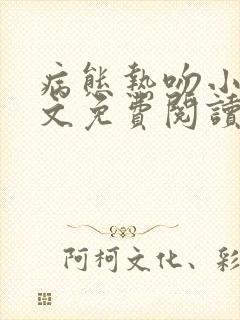 病態熱吻小
文免費閱讀
阿柯文化、彩